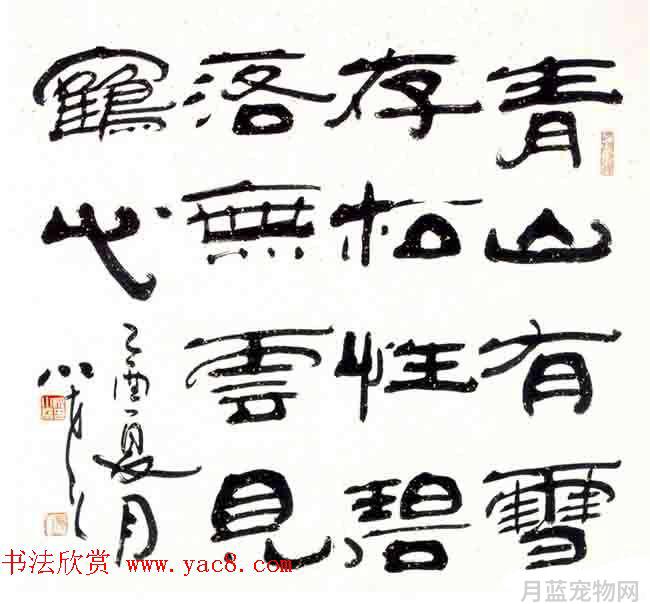 青山有雪
存松性碧
落無雲見
鶴心
乙酉夏月
书法欣赏 www.yac8.com
月蓝宠物网